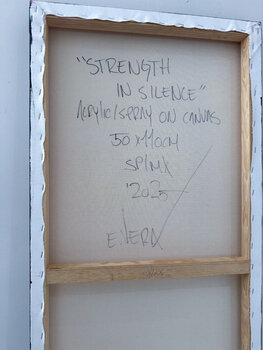 "STRENGTH
IN SILENCE"
ACRYLIC/SPRAY ON CANVAS
50X110CM
SP/MX
'2025
E.VERA